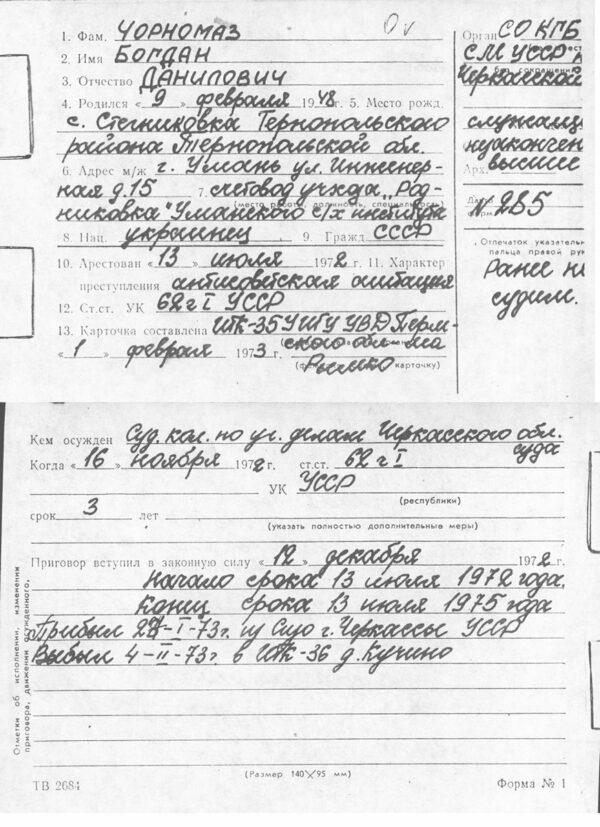 1. Фам. ЧОРНОМАЗ
2. Имя БОГДАН
3. Отчество ДАНИЛОВИЧ
4. Родился « 9 » февраля 1948 г. 5. Место рожд.
с. Стегниковка Тернопольского
района Тернопольской обл.
6. Адрес м/ж г. Умань ул. Инженер-
ная д. 15 7. счетовод учхоза „Род-
(место работы, должность, специальность)
никовка" Уманского с/х института
8. Нац. украинец 9 Гражд. СССР
10. Арестован « 13 » июля 1972 г. 11. Характер
преступления антисоветская агитация
12. Ст.ст. УК 62 ч I УССР
13. Карточка составлена ИТК-35 УИТУ УВД Перм-
« 1 » февраля 1973 г. ской обл.
карточку)
Орган СО КГБ
СМ УССР
Черкасской
служащ
незакончен
Арх. высшее
№ 285
Отпечаток указательн
пальца правой ру
Ранее не
судим.
Кем осужден Суд. кол. по уг. делам Черкасского обл.
суда
Когда « 16 » ноября 1972 г. ст.ст. 62 ч I
УК УССР
(республики)
срок 3 лет
(указать полностью дополнительные меры)
Приговор вступил в законную силу « 12 » декабря 1972 г.
Начало срока 13 июля 1972 года
Конец срока 13 июля 1975 года
Прибыл 27-I-73г. из Сизо г. Черкассы УССР
Выбыл 4-II-73г. в ИТК-36 д. Кучино
Отметки об исполнении, изменении
приговора, движении осужденного,
(Размер 140×95 мм)
ТВ 2684 Форма № 1